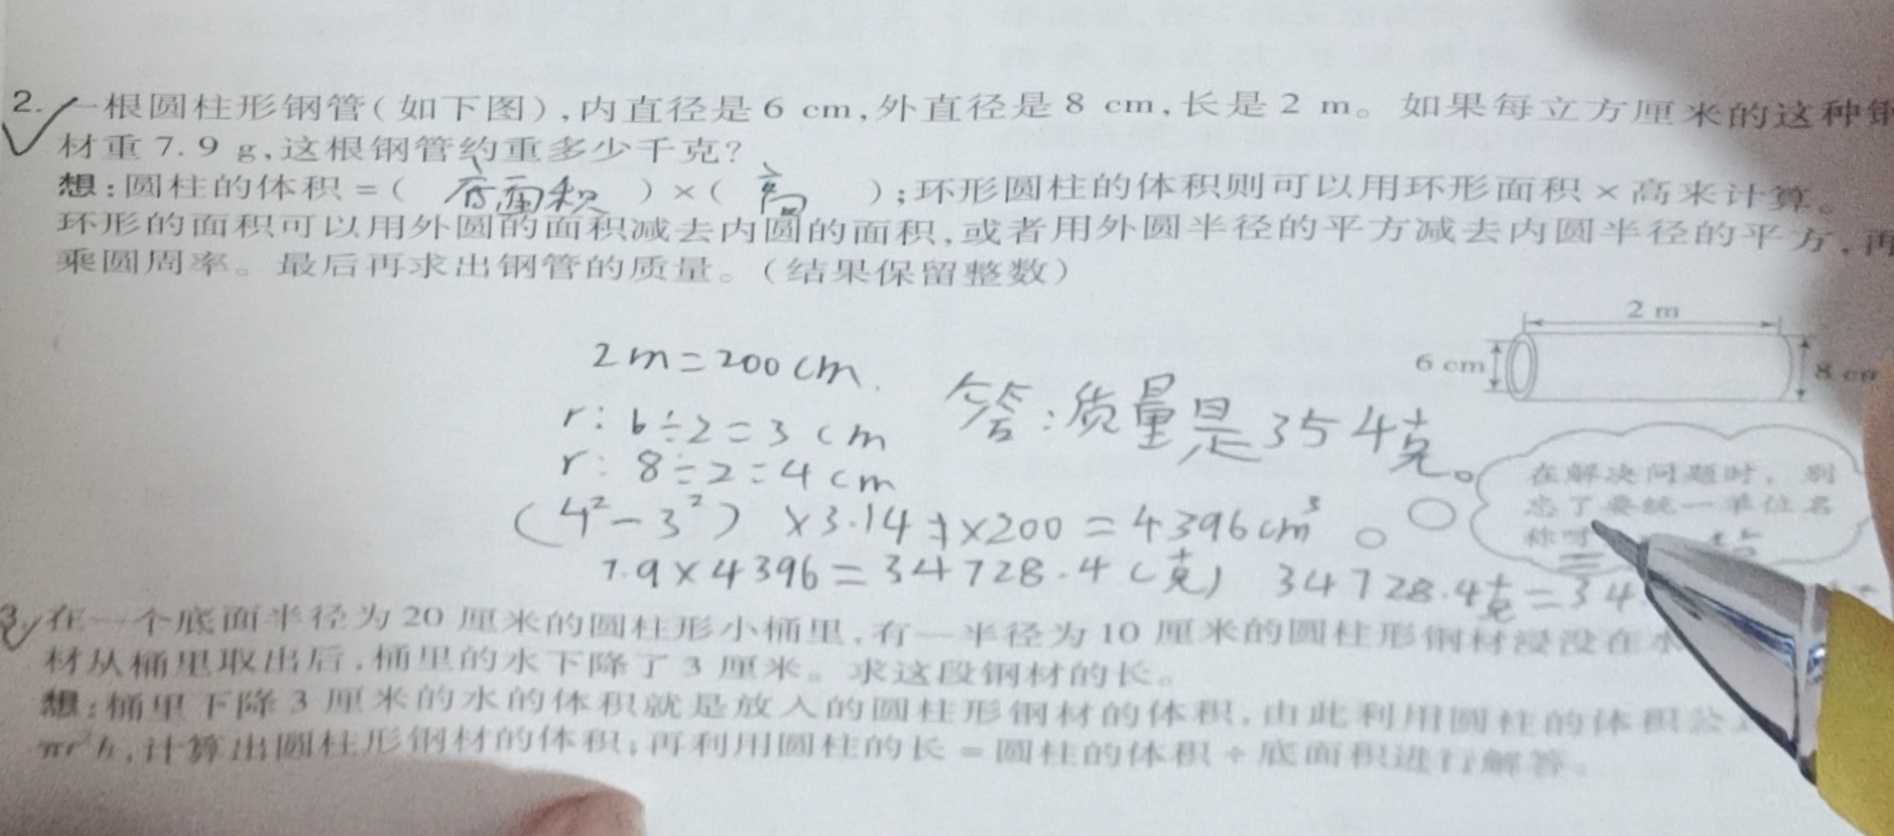 2. 一根圆柱形钢管(如下图),内直径是6 cm,外直径是8 cm,长是2 m。如果每立方厘米的这种钢
材重7.9 g,这根钢管约重多少千克?
想:圆柱的体积=( 底面积 )×( 高 );环形圆柱的体积则可以用环形面积×高来计算。
环形的面积可以用外圆的面积减去内圆的面积,或者用外圆半径的平方减去内圆半径的平方,再
乘圆周率。最后再求出钢管的质量。(结果保留整数)
2 m
6 cm
8 cm
2m=200cm.
r: 6÷2=3cm
r: 8÷2=4cm
答:质量是354克。
(4²-3²)×3.14×200=4396cm³
7.9×4396=34728.4(克) 34728.4克=34
在解决问题时,别
忘了要统一单位名
称
3. 在一个底面半径为20厘米的圆柱形小桶里,有一半径为10厘米的圆柱形钢材浸没在水
材从桶里取出后,桶里的水下降了3厘米。求这段钢材的长。
想:桶里下降3厘米的水的体积就是放入的圆柱形钢材的体积,由此利用圆柱的体积公
πr²h,计算出圆柱形钢材的体积;再利用圆柱的长=圆柱的体积÷底面积进行解答。